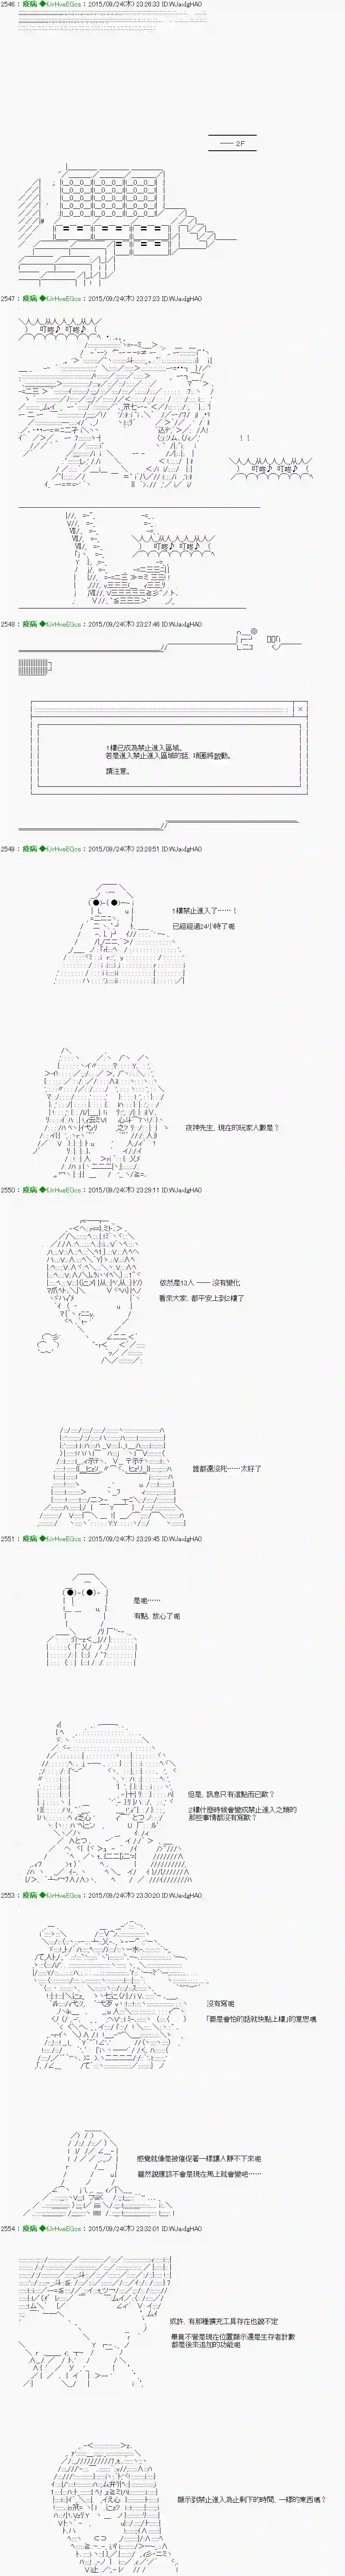 2546 : 疫病 ◆fJrHveEGcs : 2015/09/24(木) 23:26:33 ID:WJaxIgHA0
── 2F
2547 : 疫病 ◆fJrHveEGcs : 2015/09/24(木) 23:27:23 ID:WJaxIgHA0
叮咚♪ 叮咚♪
叮咚♪ 叮咚♪
叮咚♪ 叮咚♪
叮咚♪ 叮咚♪
2548 : 疫病 ◆fJrHveEGcs : 2015/09/24(木) 23:27:46 ID:WJaxIgHA0
1樓已成為禁止進入區域。
若是進入禁止進入區域的話, 項圈將啟動。
請注意。
2549 : 疫病 ◆fJrHveEGcs : 2015/09/24(木) 23:28:51 ID:WJaxIgHA0
1樓禁止進入了……！
已經經過24小時了呢
夜神先生, 現在的玩家人數是？
2550 : 疫病 ◆fJrHveEGcs : 2015/09/24(木) 23:29:11 ID:WJaxIgHA0
依然是13人 ── 沒有變化
看來大家, 都平安上到2樓了
誰都還沒死……太好了
2551 : 疫病 ◆fJrHveEGcs : 2015/09/24(木) 23:29:45 ID:WJaxIgHA0
是呢……
有點, 放心了呢
但是, 訊息只有這點而已歐？
2樓什麼時候會變成禁止進入之類的
那些事情都沒有寫歐？
2553 : 疫病 ◆fJrHveEGcs : 2015/09/24(木) 23:30:20 ID:WJaxIgHA0
沒有寫呢
「要是會怕的話就快點上樓」的意思嗎
感覺就像是被催促著一樣讓人靜不下來呢
雖然說應該不會是現在馬上就會變吧……
2554 : 疫病 ◆fJrHveEGcs : 2015/09/24(木) 23:32:01 ID:WJaxIgHA0
或許, 有那種擴充工具存在也說不定
畢竟不管是現在位置顯示還是生存者計數
都是後來追加的功能呢
顯示到禁止進入為止剩下的時間, 一樣的東西嗎？